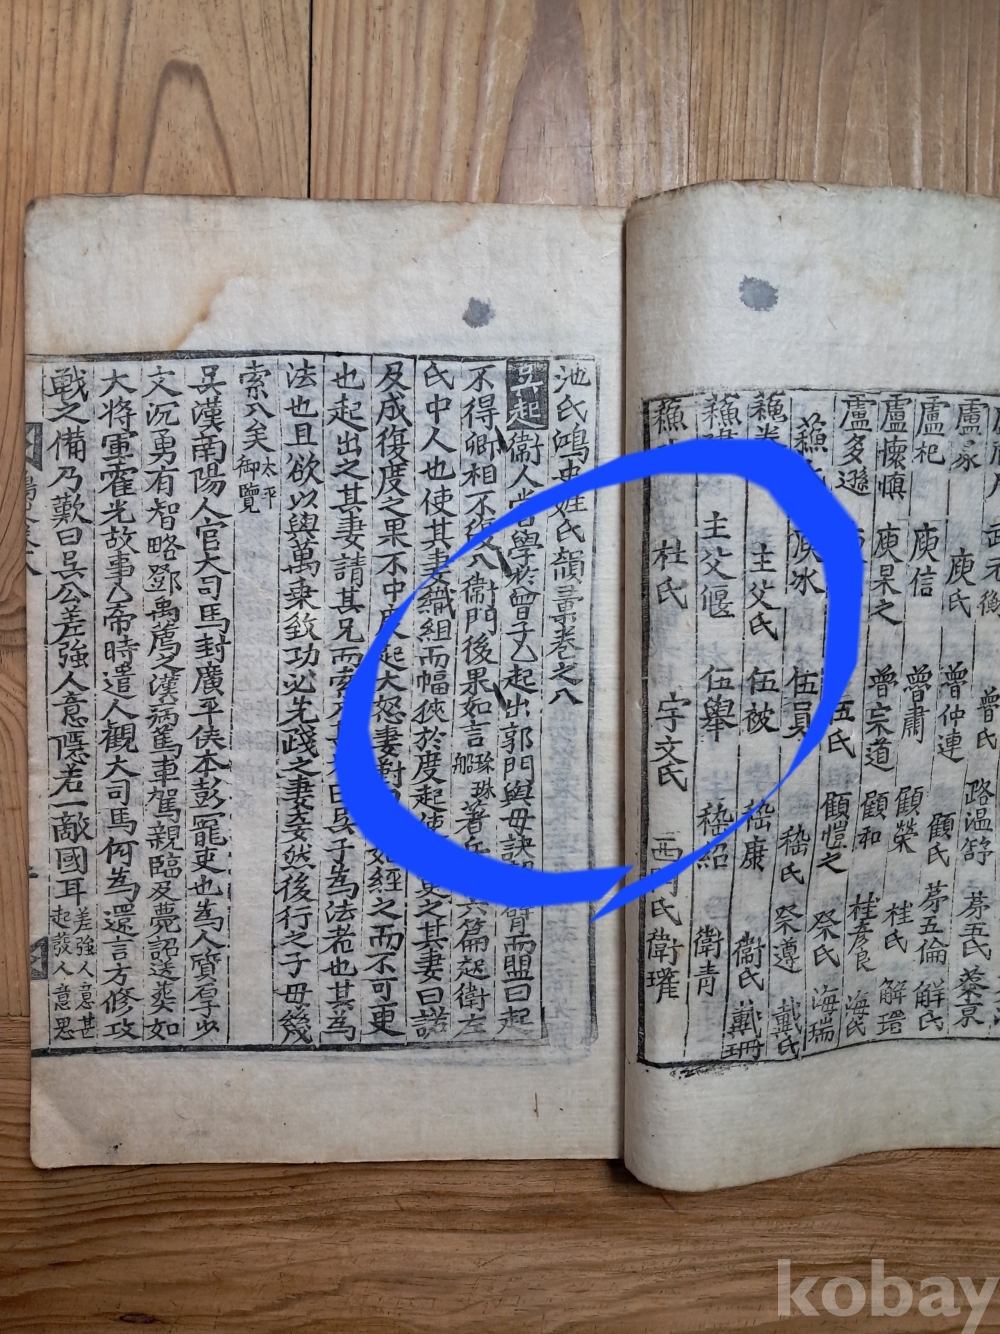 武元衡 曾氏 路温舒 茅五氏 蔡京
盧 庾氏 曾仲連 顧氏 茅五倫 解氏
盧杞 庾信 曾肅 顧榮 桂氏 解環
盧懷慎 庾杲之 曾宗道 顧和 桂彦良 海氏
盧多遜 伍氏 顧愷之 祭氏 海瑞
蘇 庾冰 伍員 嵇氏 祭遵 戴氏
蘇 主父氏 伍被 嵇康 衛氏 戴珊
蘇 主父偃 伍舉 嵇紹 衛青
蘇 杜氏 宇文氏 西門氏 衛瓘
池氏鴻史姓氏韻彙卷之八
吳起 衛人嘗學於曾子乙起出郭門與母訣 臂而盟曰起
不得卿相不復入衛門後果如言 著兵 其篇起衛左
氏中人也使其妻織組而幅狹於度起使更之其妻曰諾
及成復度之果不中度起大怒妻對 如經之而不可更
也起出之其妻請其兄而索 曰吳子為法者也其為
法也且欲以與萬乘致功必先踐之妻妾然後行之子毋幾
索入矣 太平御覽
吳漢南陽人官大司馬封廣平侯本彭寵吏也為人質厚少
文沉勇有智略鄧禹薦之漢病篤車駕親臨及薨詔送葬如
大將軍霍光故事乙帝時遣人觀大司馬何為還言方修攻
戰之備乃歎曰吳公差強人意隱若一敵國耳 差強人意甚起發人意思
kobay